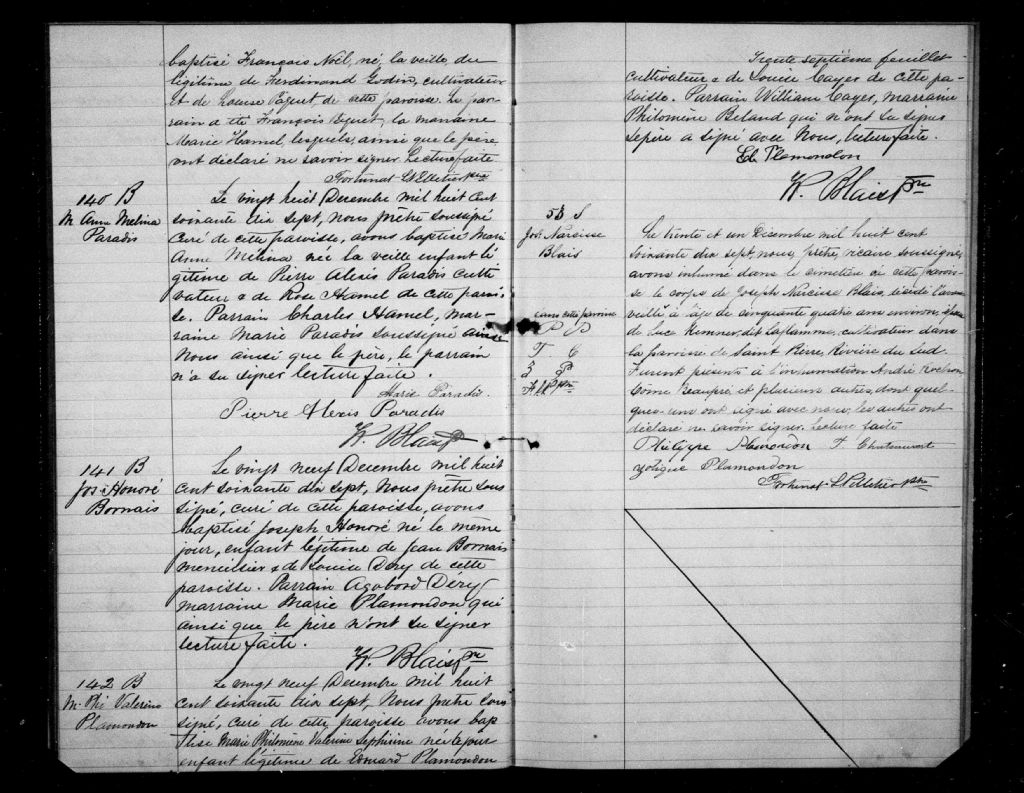 baptisé François Noël, né, la veille, du
légitime de Ferdinand Godin, cultivateur
et de Louise Paquet, de cette paroisse. Le par-
rain a été François Paquet, la marraine
Marie Hamel, lesquels, ainsi que le père,
ont déclaré ne savoir signer. Lecture faite
Fortunat L. Pelletier ptre
140 B
M. Anne Melina
Paradis
Le vingt huit Decembre mil huit cent
soixante dix sept, nous prêtre soussigné
curé de cette paroisse, avons baptisé Marie
Anne Melina née la veille enfant lé
gitime de Pierre Alexis Paradis culti
vateur & de Rose Hamel de cette parois
se. Parrain Charles Hamel, mar-
raine Marie Paradis soussigné avec
Nous ainsi que le père, le parrain
n'a su signer lecture faite.
Marie Paradis.
Pierre Alexis Paradis
W. Blais ptre
141 B
Jos. Honoré
Bornais
Le vingt neuf Decembre mil huit
cent soixante dix sept, Nous prêtre sous
signé, curé de cette paroisse, avons
baptisé Joseph Honoré né le meme
jour, enfant légitime de Jean Bornais
menuisier & de Louise Dery de cette
paroisse. Parrain Agobord Déry
marraine Marie Plamondon qui
ainsi que le père n'ont su signer
lecture faite.
W. Blais ptre
142 B
M. Phi Valerine
Plamondon
Le vingt neuf Decembre mil huit
cent soixante dix sept, Nous prêtre sous
signé, curé de cette paroisse avons bap
tisé Marie Philomène Valerine Sephirine née le jour
enfant légitime de Edouard Plamondon
Trente septième feuillet
cultivateur & de Louise Cayer de cette pa-
roisse. Parrain William Cayer, marraine
Philomène Beland qui n'ont su signer
le père a signé avec Nous, lecture faite.
Ed. Plemondon
W. Blais ptre
53 S
Jos. Narcisse
Blais
Le trente et un Décembre mil huit cent
soixante dix sept, nous, prêtre, vicaire soussigné,
avons inhumé dans le cimetière de cette parois-
se le corps de Joseph Narcisse Blais, décédé l'avant
veille à l'âge de cinquante quatre ans environ, époux
de Luce Kemner dit Laflamme, cultivateur dans
la paroisse de Saint Pierre, Rivière du Sud.
Furent présents à l'inhumation André
Côme Beaupré et plusieurs autres, dont quel-
ques-uns ont signé avec nous, les autres ont
déclaré ne savoir signer. Lecture faite
dans cette paroisse
P P
T. C
3 P
F. L. P. Ptre
Philippe Plamondon F.
Zotique Plamondon
Fortunat L. Pelletier ptre